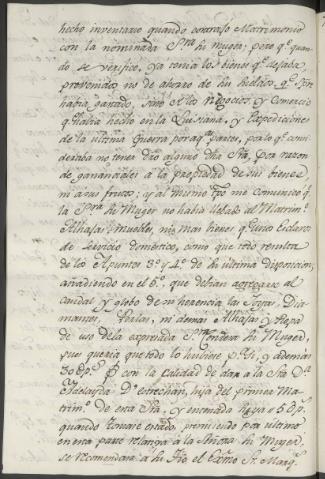 hecho inventario quando contrajo Matrimonio
con la nominada S.ra su muger; pero q.e quan
do se verifico, ya tenia los bienes q.e dejaba,
provenidos no de ahorro de sus sueldos, q.e
havia gastado, sino de los Negocios, y Comercio
q.e havia hecho en la Luisiana, y Expediciones
de la ultima Guerra por aq.s partes, por lo q.e consi
deraba no tener dro alguno dha S.ra, por razon
de gananciales a la propiedad de sus bienes
ni a sus frutos; y al mismo tpo me comunicó q.e
la S.ra su Muger no havia llevado al Matrim.o
Alhajas, muebles, ni mas bienes q.e unos Esclavos
de servicio domestico, como que todo resulta
de los Apuntes 3.o y 4.o de su ultima disposicion,
añadiendo en el 6.o, que debian agregarse al
caudal y globo de su herencia las Joyas, Dia
mantes, Perlas, ni demas Alhajas y Ropa
de uso de la expresada S.ra Condesa su Muger,
pues queria que todo lo hubiese p.r si, y ademas
30@p.s con la calidad de dar a la S.ta D.a
Adelayda D'estrehan, hija del primer Ma
trim.o de esta S.ra, y entenada suya 50 p.s
quando tomare estado, previniendo por ultimo
en esta parte relativa a la Señora su Muger,
se recomendara a su Tio el Exmo Sr. Marq.s